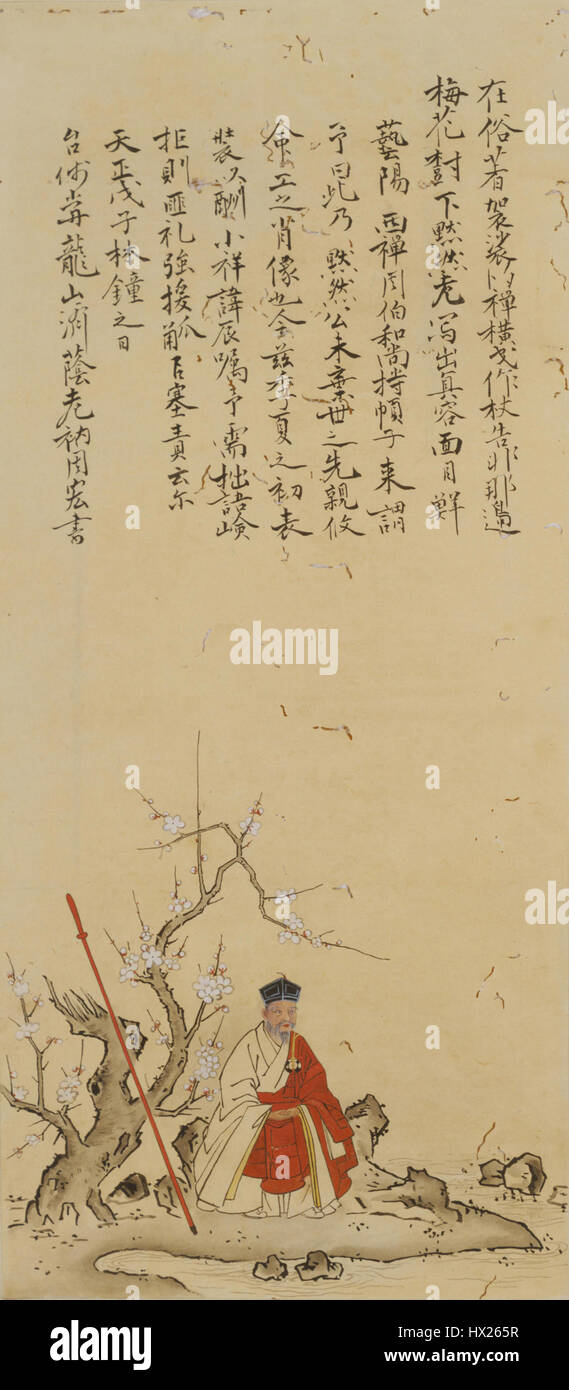 在俗着袈裟似禅横戈作杖告非那邊
梅花樹下黙然老写出真容面目鮮
藝陽西禅周伯和尚持幀子来謂
予曰此乃黙然公未棄世之先親攸
命工之肖像也今茲季夏之初表
装以酬小祥諱辰嘱予需拙語
拒則匪礼強援觚以塞責云尓
天正戊子林鐘之日
龍山
老衲周宏書
alamy
alamy stock photo
HX265R
www.alamy.com